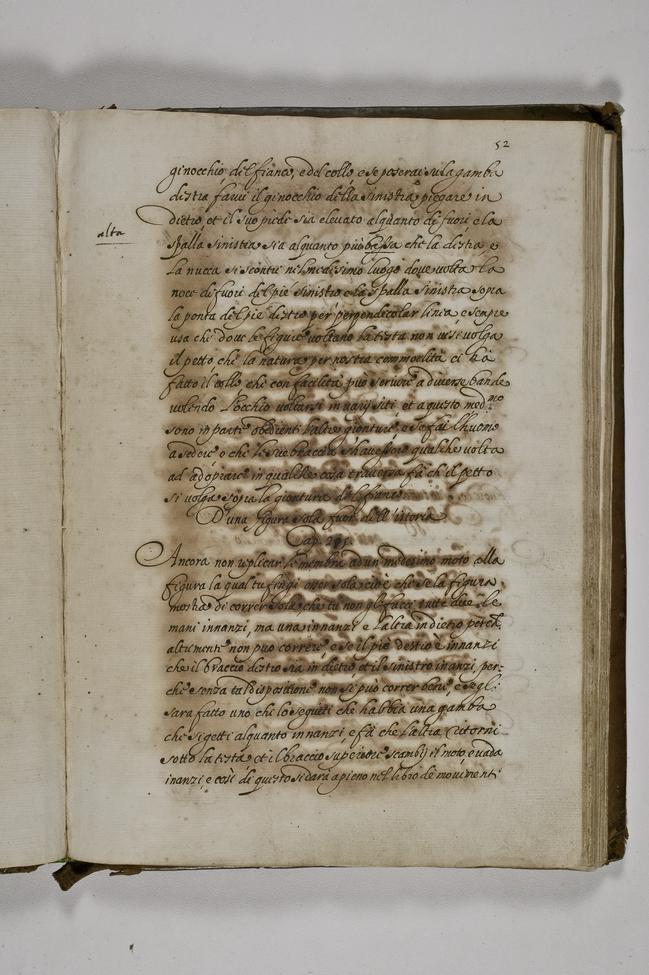 52
ginocchio del fianco, e del collo e se poserai su la gamba
destra farai il ginocchio della sinistra piegare in
dietro, et il suo piede sia elevato alquanto di fuori e la
alta
spalla sinistra sia alquanto più bassa che la destra, e
la nucca si scontri nel medesimo luogo dove volta la
noce di fuori del pie sinistro e la spalla sinistra sopra
la ponta del pie destro per perpendicolar linia, e sempre
usa che dove le figure voltano la testa non vi se volga
il petto che la natura per nostra commodità ci hà
fatto il collo che con facilità può servire a diverse bande
volendo l'occhio voltarsi in varij siti et a questo med.mo
sono in parte obedienti l'altre gionture e se fai l'huomo
a sedere o che le sue braccia s'havessero qualche volta
ad adoprare in qualche cosa traversa fà ch'il petto
si volga sopra la giontura del fianco
D'una figura sola fuor dell'istoria
Cap.
Ancora non replicar le membra ad un medesimo moto alla
figura la qual tu fingi esser sola cioè che se la figura
mostra di correr sola, che tu non gli facci tutte due le
mani innanzi, ma una innanzi e l'altra in dietro perche
altrimenti non può correre e se il piè destro è innanzi
che il braccio destro sia in dietro et il sinistro inanzi, per-
che senza tal dispositione non si può correr bene, e se gli
sara fatto uno che lo seguiti che habbia una gamba
che si getti alquanto innanzi e fà che l'altra ritorni
sotto la testa et il braccio superiore scambij il moto e vada
inanzi, e così di questo si darà a pieno nel libro de movimenti